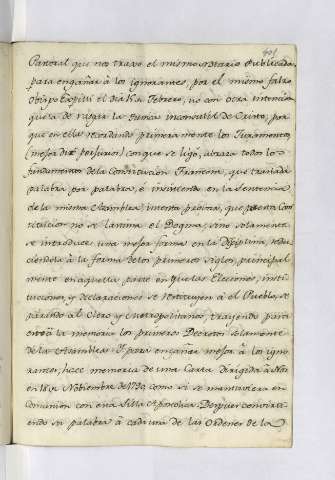 401
Pastoral que nos traxo el mismo notario publicada
para engañar à los ignorantes, por el mismo falso
Obispo Expilli el dia 15 de Febrero, no con otra intencion
que la de rasgar la tunica inconsutil de Cristo, por
que en ella recordando primeramente los Juramentos
(mejor diré perjurios) con que se ligó, abraza todos los
fundamentos de la Constitucion Francesa, que traslada
palabra por palabra, e insistiendo en la sentencia
de la misma Asamblea, intenta probar, que por esta Con
stitucion no se lastima el Dogma, sino solamente
se introduce una mejor forma en la Disciplina, redu
ciendola à la forma de los primeros siglos, principal
mente en aquella parte en que las Elecciones, insti
tuciones, y declaraciones se restituyen à el Pueblo, se
parando al Clero y Metropolitanos, trayendo para
esto à la memoria los primeros Decretos solamente
de la Asamblea. Y para engañar mejor à los igno
rantes, hace memoria de una Carta dirigida à Nos
en 18 de Noviembre de 1790 como si se mantuviera en
comunion con esta Silla Apostolica. Despues convirti
endo su palabra à cada una de las Ordenes de la